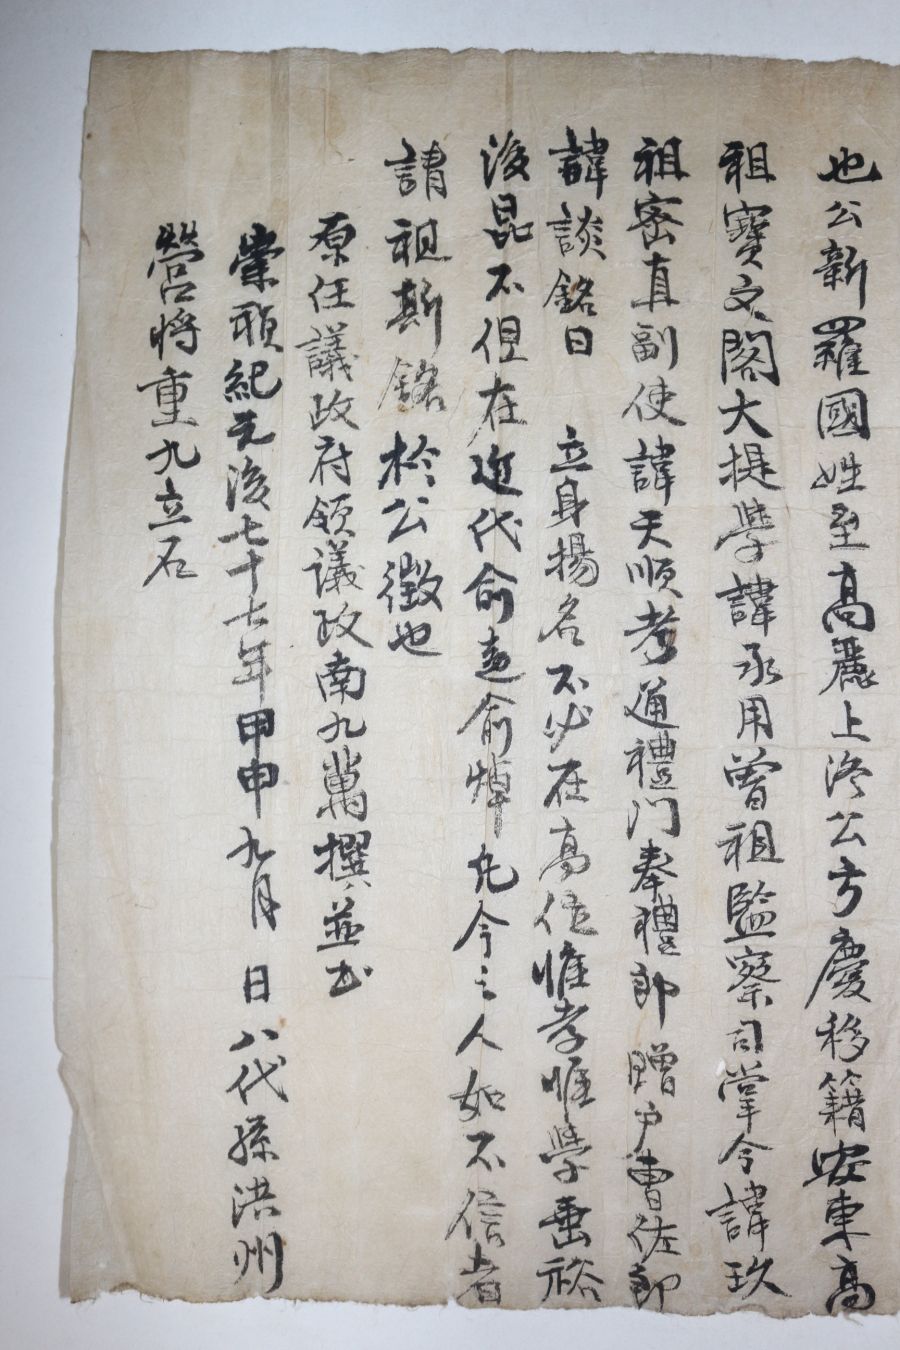 也公新羅國姓至高麗上洛公方慶移籍安東高
祖寶文閣大提學諱承用曾祖監察司掌令諱玖
祖密直副使諱天順考通禮門奉禮郎贈户曹佐郎
諱談銘曰 立身揚名不必在高位惟孝惟學垂裕
後昆不但在近代俞遠俞焯凡今之人如不信者
請祖斯銘於公徵也
原任議政府領議政南九萬撰並书
崇禎紀元後七十七年甲申九月 日八代孫洪州
營將重九立石